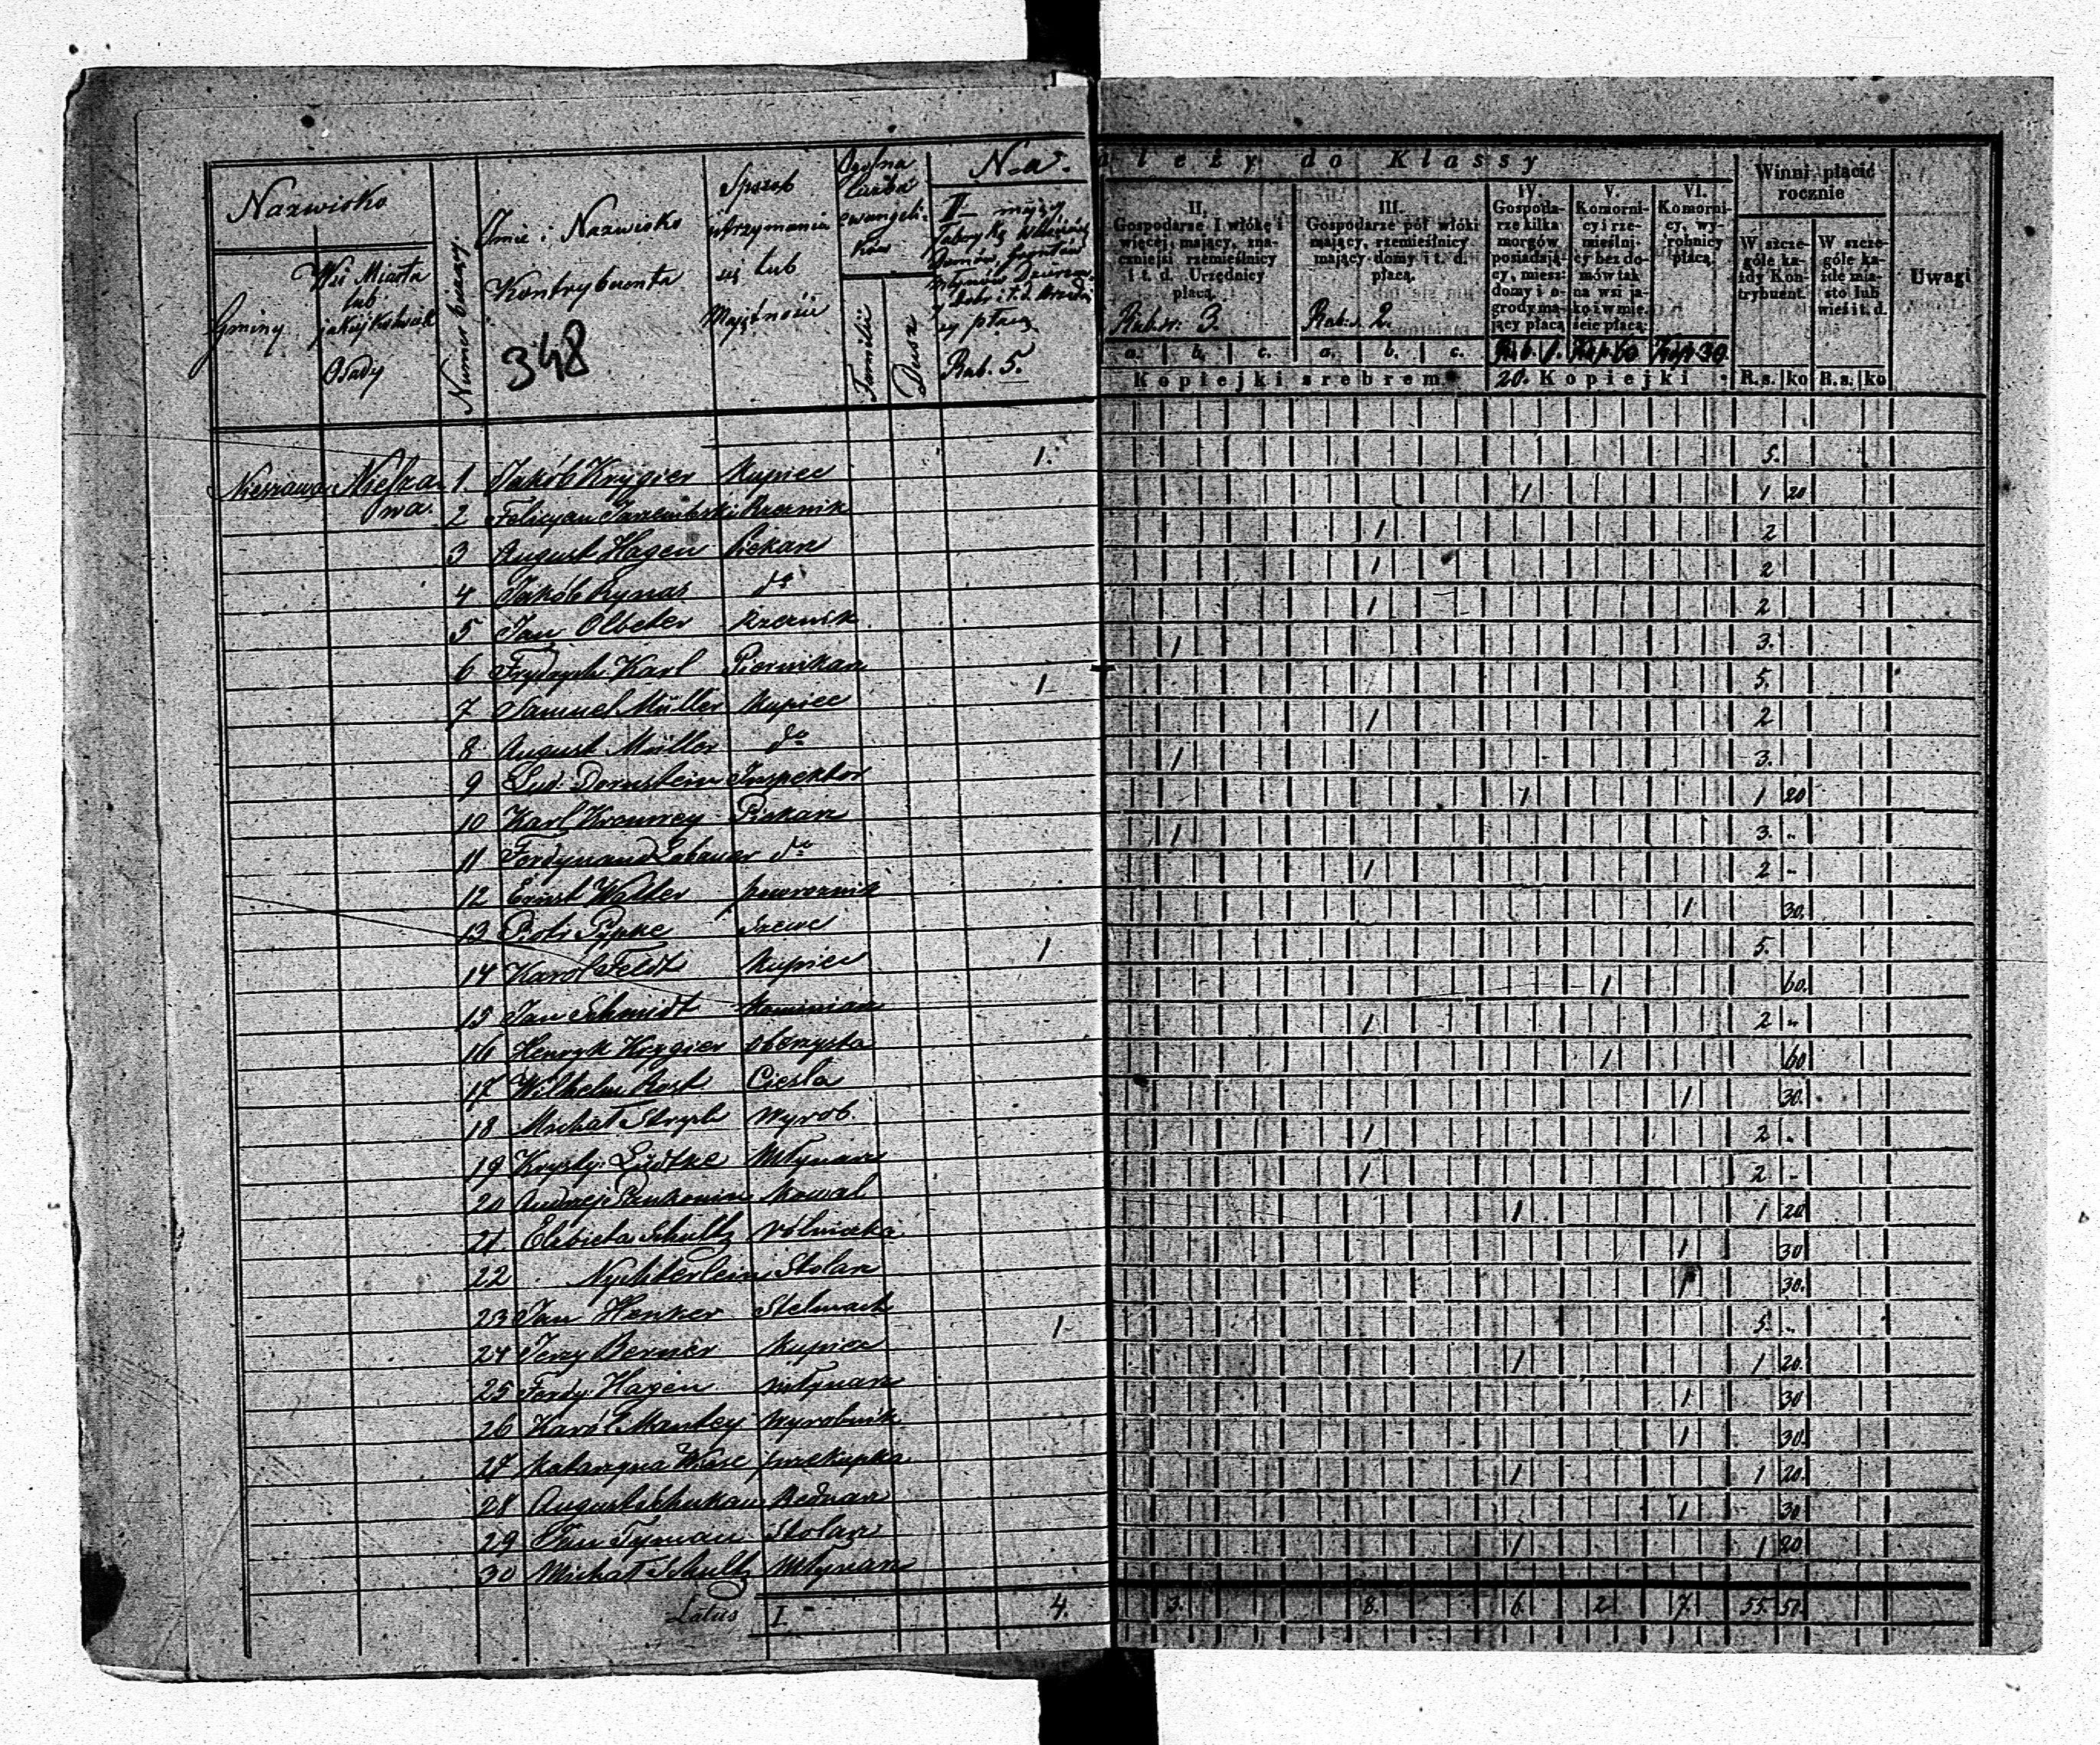 Nazwisko
Gminy
Wsi Miasta lub jakiejkolwiek Osady
Numer bieżący
Imie i Nazwisko Kontrybuenta
348
Sposób utrzymania się lub Majętności
Ogólna liczba ewangelików
Familii
Dusz
Na-
Rub. 5.
ależy do Klassy
II. Gospodarze 1 włókę i więcej mający, znaczniejsi rzemieślnicy i t. d. Urzędnicy płacą
Rub. sr. 3.
III. Gospodarze pół włóki mający, rzemieślnicy mający domy i t. d. płacą.
Rub. s. 2.
IV. Gospodarze kilka morgów posiadający, miesz: domy i ogrody mający płacą
Rub. 1.
V. Komornicy i rzemieślnicy bez domów tak na wsi jako i w mieście płacą:
Kop. 60
VI. Komornicy, wyrobnicy płacą.
Kop. 30.
a. b. c. a. b. c.
Kopiejki srebrem
20. Kopiejki
Winni płacić rocznie
W szczególe każdy Kontrybuent.
W szczególe każde miasto lub wieś i t. d.
R. s. ko R. s. ko
Uwagi
Nieszawa Nieszawa. 1. Jakób Krygier Kupiec 1. 5.
2 Felicyan Rzeznik 1 1 20
3 August Hagen Piekarz 1 2
4 Jakób Rynas do 1 2
5 Jan Olbeter Rzeznik 1 2
6 Frydrych Karl Piernikarz 1 3.
7 Samuel Müller Kupiec 1 5.
8 August Müller do 1 2
9 Lud. Dornstein Inspektor 1 3.
10 Karl Kromrey Piekarz 1 1 20
11 Ferdynand do 1 3. "
12 Ernst Walter powroznik 1 2 -
13 Piotr Pypke Szewc 1 30.
14 Karól Feldt Kupiec 1 5.
15 Jan Schmidt Kominiarz 1 60.
16 Henryk Krygier oberzysta 1 2 "
17 Wilhelm Rost Ciesla 1 60
18 Michał Wyrob. 1 30.
19 Krysty: Lüdtke Młynarz 1 2 .
20 Andrzej Pankonin Kowal 1 2 -
21 Elżbieta Schultz rólniczka 1 1 20
22 . Nychterlein Stolarz 1 30
23 Jan Henker Stelmach 1 30.
24 Jerzy Berner Kupiec 1 5. "
25 Ferdy: Hagen młynarz 1 1 20.
26 Karól Mantey Wyrobnik 1 30
27 Katarzyna Wiese przekupka 1 30.
28 August Bednarz 1 1 20.
29 Jan Tyman Stolarz 1 30
30 Michał Schultz Młynarz 1 1 20
Latus I. 4. 3. 8. 6. 2 7. 55 50.